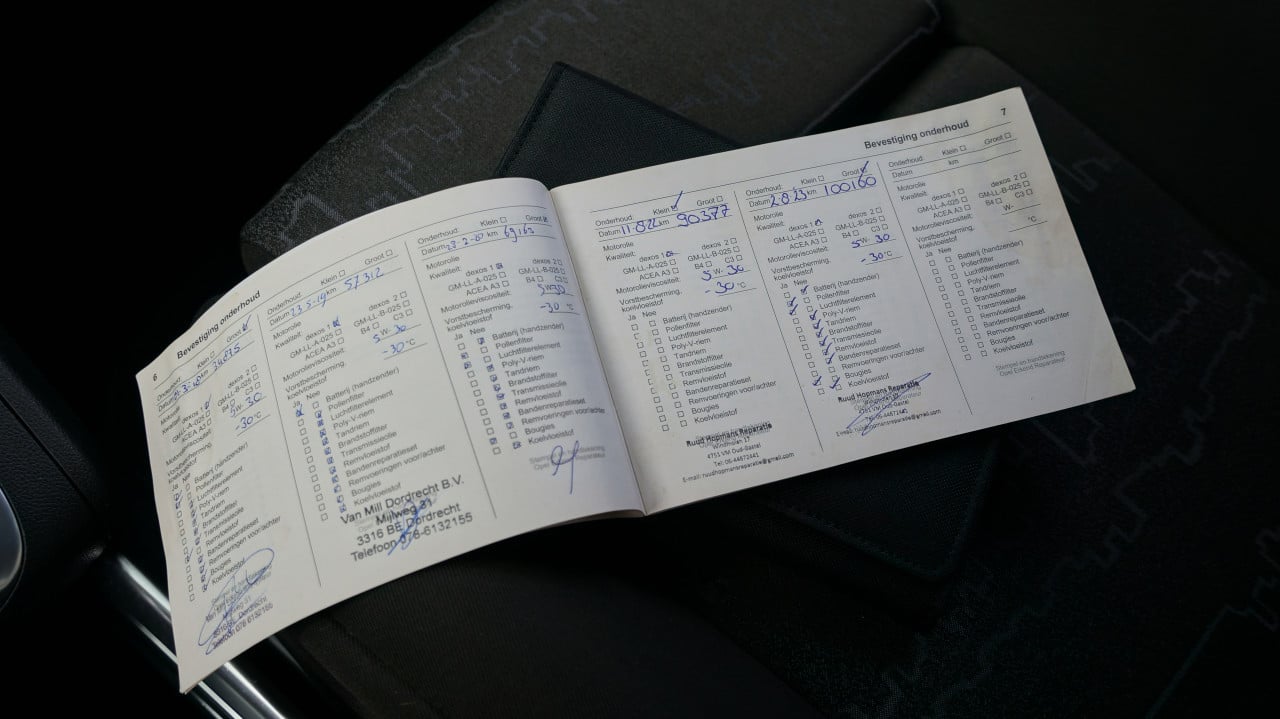 6
Bevestiging onderhoud
Onderhoud: Klein Groot
Datum km 34875
Motorolie
Kwaliteit: dexos 1 dexos 2
GM-LL-A-025 GM-LL-B-025
ACEA A3 B4 C3
Motorolieviscositeit: 5W-30
Vorstbescherming,
koelvloeistof -30 °C
Ja Nee
Batterij (handzender)
Pollenfilter
Luchtfilterelement
Poly-V-riem
Tandriem
Brandstoffilter
Transmissieolie
Remvloeistof
Bandenreparatieset
Remvoeringen voor/achter
Bougies
Koelvloeistof
Stempel en handtekening
Mijlweg 31
3316 BE Dordrecht
Telefoon 078-6132155
Onderhoud: Klein Groot
Datum 23-5-19 km 57312
Motorolie
Kwaliteit: dexos 1 dexos 2
GM-LL-A-025 GM-LL-B-025
ACEA A3 B4 C3
Motorolieviscositeit: 5W-30
Vorstbescherming,
koelvloeistof -30 °C
Ja Nee
Batterij (handzender)
Pollenfilter
Luchtfilterelement
Poly-V-riem
Tandriem
Brandstoffilter
Transmissieolie
Remvloeistof
Bandenreparatieset
Remvoeringen voor/achter
Bougies
Koelvloeistof
Van Mill Dordrecht B.V.
Mijlweg 31
3316 BE Dordrecht
Telefoon 078-6132155
Onderhoud: Klein Groot
Datum km 69163
Motorolie
Kwaliteit: dexos 1 dexos 2
GM-LL-A-025 GM-LL-B-025
ACEA A3 B4 C3
Motorolieviscositeit: 5W30
Vorstbescherming,
koelvloeistof -30 °C
Ja Nee
Batterij (handzender)
Pollenfilter
Luchtfilterelement
Poly-V-riem
Tandriem
Brandstoffilter
Transmissieolie
Remvloeistof
Bandenreparatieset
Remvoeringen voor/achter
Bougies
Koelvloeistof
Stempel en handtekening
Opel Erkend Reparateur
7
Bevestiging onderhoud
Onderhoud: Klein Groot
Datum 11-8-22 km 90377
Motorolie
Kwaliteit: dexos 1 dexos 2
GM-LL-A-025 GM-LL-B-025
ACEA A3 B4 C3
Motorolieviscositeit: 5W-30
Vorstbescherming,
koelvloeistof -30 °C
Ja Nee
Batterij (handzender)
Pollenfilter
Luchtfilterelement
Poly-V-riem
Tandriem
Brandstoffilter
Transmissieolie
Remvloeistof
Bandenreparatieset
Remvoeringen voor/achter
Bougies
Koelvloeistof
Ruud Hopmans Reparatie
Windmolen 17
4751 VM Oud-Gastel
Tel: 06-44673441
E-mail: ruudhopmansreparatie@gmail.com
Onderhoud: Klein Groot
Datum 2-8-23 km 100160
Motorolie
Kwaliteit: dexos 1 dexos 2
GM-LL-A-025 GM-LL-B-025
ACEA A3 B4 C3
Motorolieviscositeit: 5W-30
Vorstbescherming,
koelvloeistof -30 °C
Ja Nee
Batterij (handzender)
Pollenfilter
Luchtfilterelement
Poly-V-riem
Tandriem
Brandstoffilter
Transmissieolie
Remvloeistof
Bandenreparatieset
Remvoeringen voor/achter
Bougies
Koelvloeistof
Ruud Hopmans Reparatie
4751 VM Oud-Gastel
Tel: 06-44673441
E-mail: ruudhopmansreparatie@gmail.com
Onderhoud: Klein Groot
Datum km
Motorolie
Kwaliteit: dexos 1 dexos 2
GM-LL-A-025 GM-LL-B-025
ACEA A3 B4 C3
Motorolieviscositeit: W-
Vorstbescherming,
koelvloeistof °C
Ja Nee
Batterij (handzender)
Pollenfilter
Luchtfilterelement
Poly-V-riem
Tandriem
Brandstoffilter
Transmissieolie
Remvloeistof
Bandenreparatieset
Remvoeringen voor/achter
Bougies
Koelvloeistof
Stempel en handtekening
Opel Erkend Reparateur